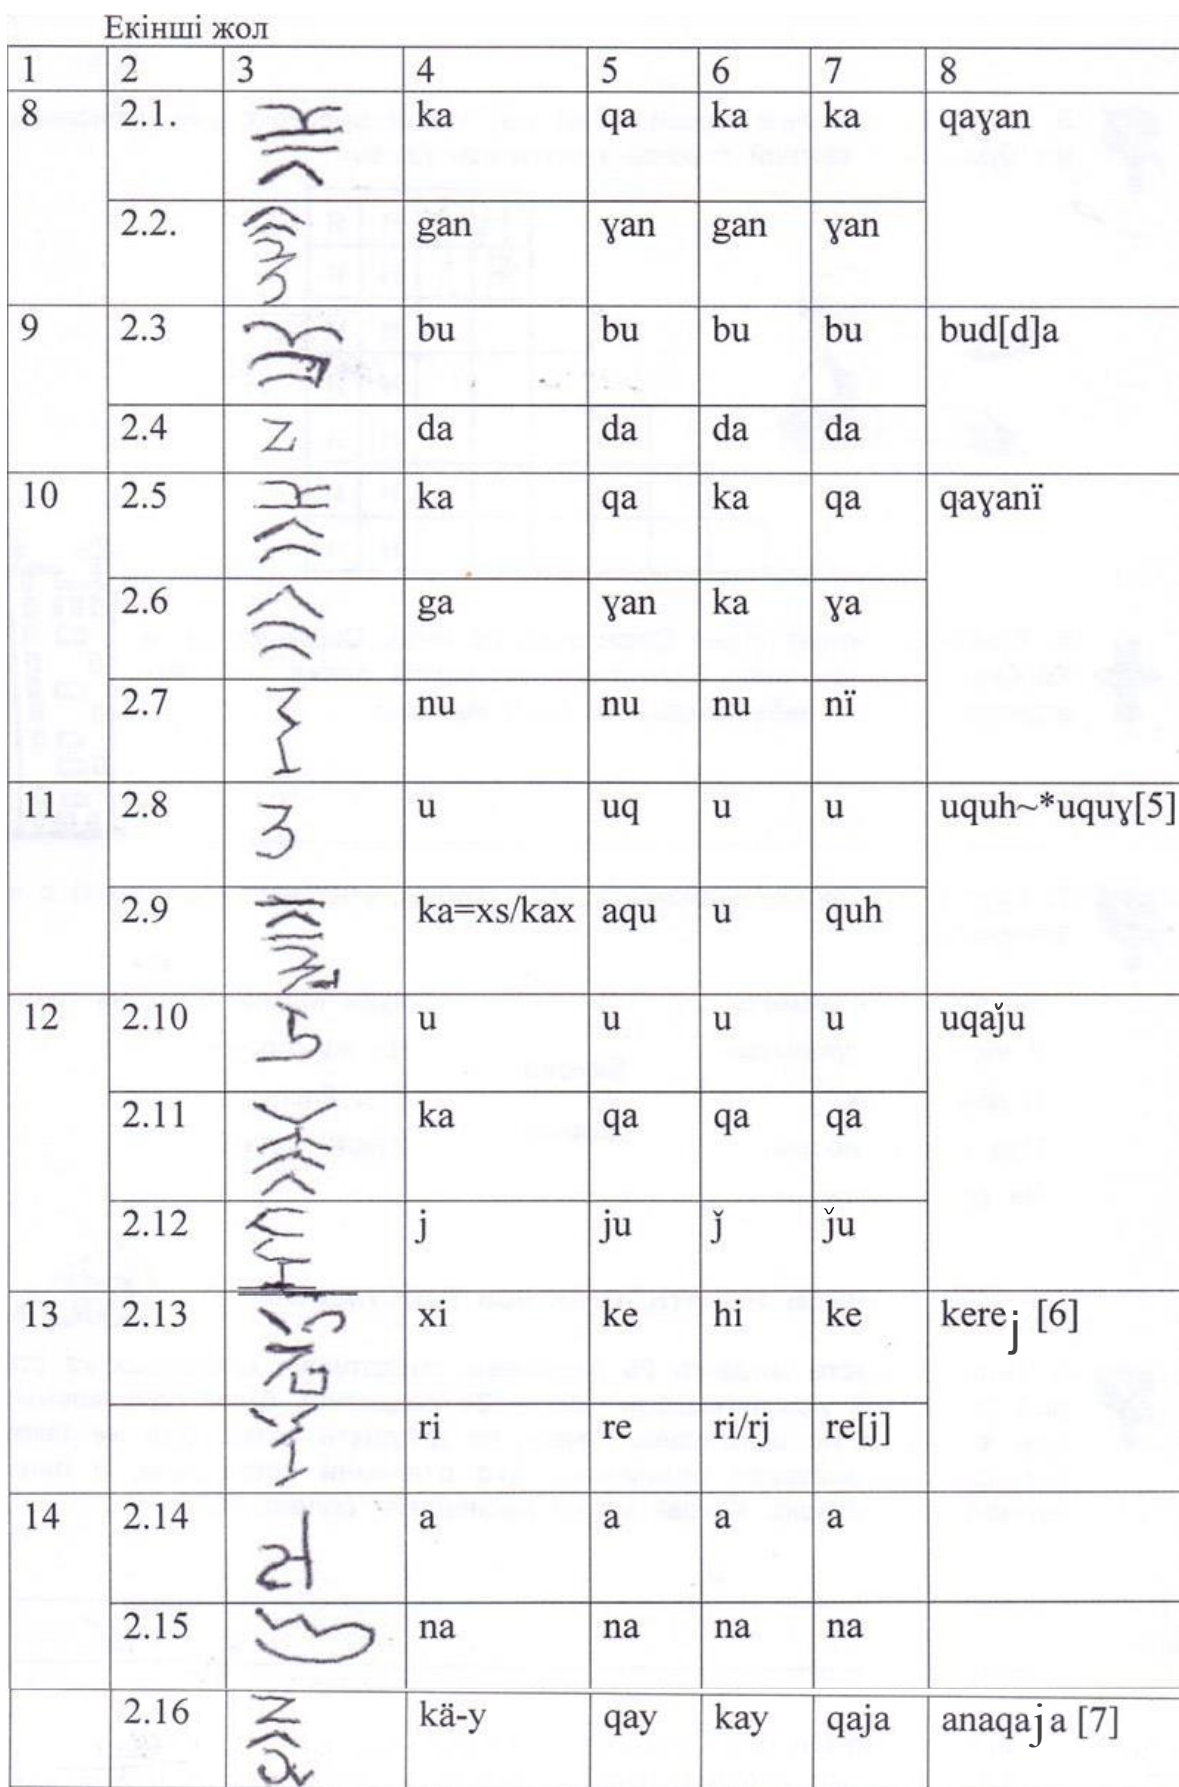 Екінші жол
1 2 3 4 5 6 7 8
8 2.1. ka qa ka ka qaɣan
2.2. gan ɣan gan ɣan
9 2.3 bu bu bu bu bud[d]a
2.4 da da da da
10 2.5 ka qa ka qa qaɣanï
2.6 ga ɣan ka ɣa
2.7 nu nu nu nï
11 2.8 u uq u u uquh~*uquɣ[5]
2.9 ka=xs/kax aqu u quh
12 2.10 u u u u uqaǰu
2.11 ka qa qa qa
2.12 j ju ǰ ǰu
13 2.13 xi ke hi ke kerej [6]
ri re ri/rj re[j]
14 2.14 a a a a
2.15 na na na na
2.16 kä-y qay kay qaja anaqaja [7]